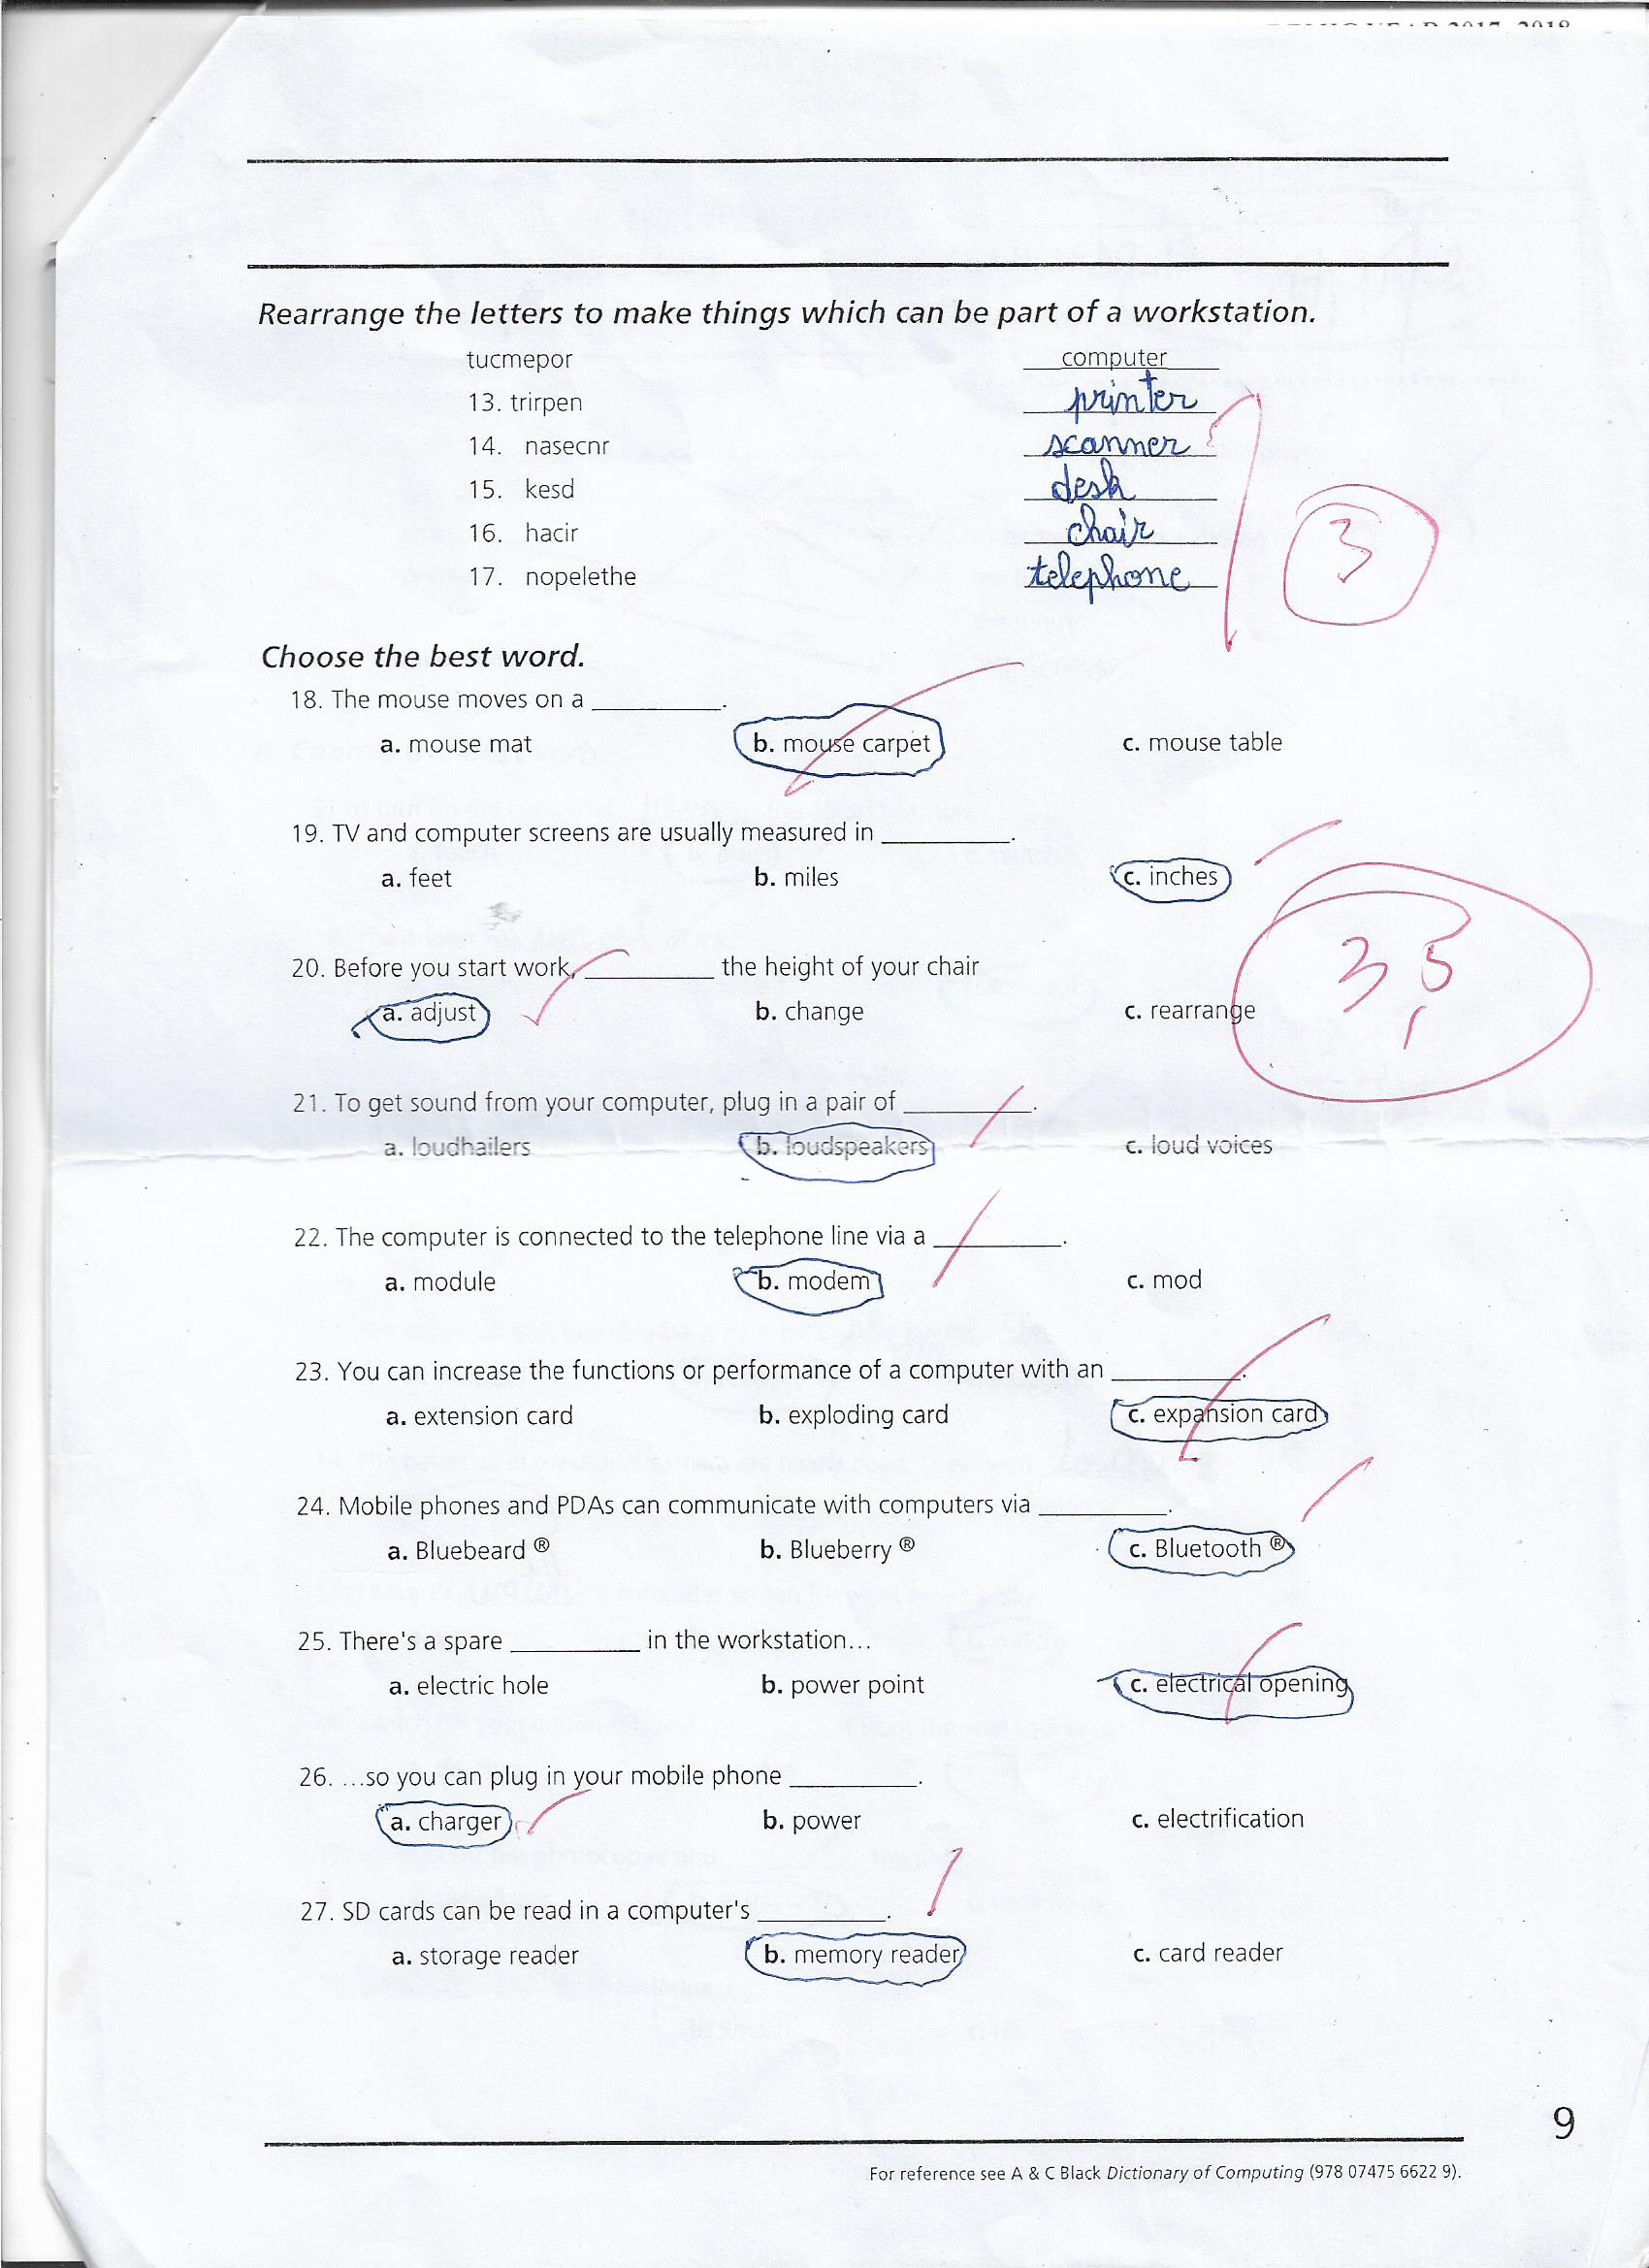 Rearrange the letters to make things which can be part of a workstation.
tucmepor computer
13. trirpen printer
14. nasecnr scanner
15. kesd desk
16. hacir chair
17. nopelethe telephone
3
Choose the best word.
18. The mouse moves on a __________.
a. mouse mat b. mouse carpet c. mouse table
19. TV and computer screens are usually measured in __________.
a. feet b. miles c. inches
3,5
20. Before you start work, __________ the height of your chair
a. adjust b. change c. rearrange
21. To get sound from your computer, plug in a pair of __________.
a. loudhailers b. loudspeakers c. loud voices
22. The computer is connected to the telephone line via a __________.
a. module b. modem c. mod
23. You can increase the functions or performance of a computer with an __________.
a. extension card b. exploding card c. expansion card
24. Mobile phones and PDAs can communicate with computers via __________.
a. Bluebeard ® b. Blueberry ® c. Bluetooth ®
25. There's a spare __________ in the workstation...
a. electric hole b. power point c. electrical opening
26. ...so you can plug in your mobile phone __________.
a. charger b. power c. electrification
27. SD cards can be read in a computer's __________.
a. storage reader b. memory reader c. card reader
9
For reference see A & C Black Dictionary of Computing (978 07475 6622 9).